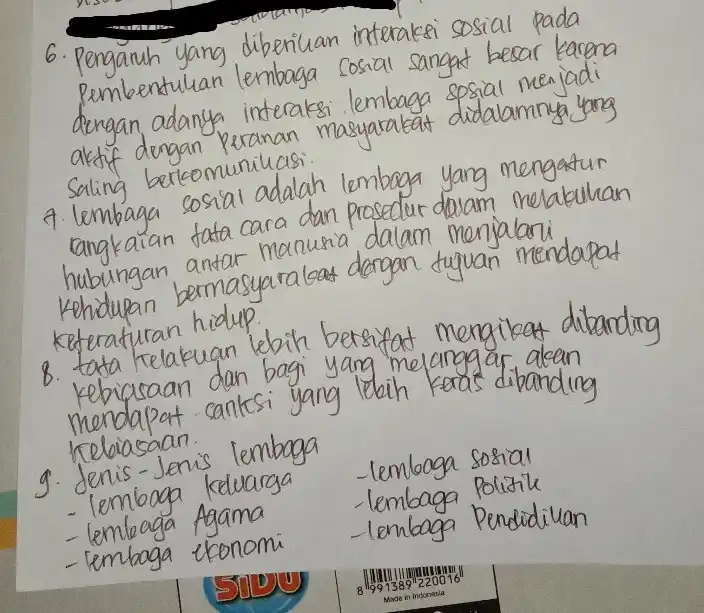 6. Pengaruh yang diberikan interaksi sosial pada
Pembentukan lembaga sosial sangat besar karena
dengan adanya interaksi lembaga sosial menjadi
aktif dengan Peranan masyarakat didalamnya yang
Saling berkomunikasi.
7. lembaga sosial adalah lembaga yang mengatur
rangkaian tata cara dan prosedur dalam melakukan
hubungan antar manusia dalam menjalani
kehidupan bermasyarakat dengan tujuan mendapat
keteraturan hidup.
8. tata kelakuan lebih bersifat mengikat dibanding
kebiasaan dan bagi yang melanggar akan
mendapat sanksi yang lebih keras dibanding
kebiasaan.
9. Jenis-Jenis lembaga
- lembaga keluarga
- lembaga Agama
- lembaga ekonomi
- lembaga sosial
- lembaga Politik
- lembaga Pendidikan
SIDU
8 991389 220016
Made in Indonesia